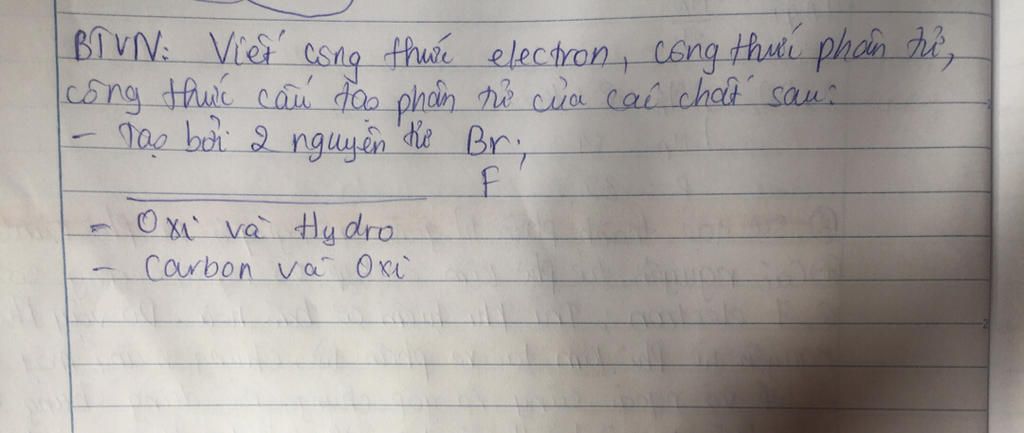 BTVN: Viết công thức electron, công thức phân tử,
công thức cấu tạo phân tử của các chất sau:
- Tạo bởi 2 nguyên tử Br;
F
- Oxi và Hydro
- Carbon và Oxi